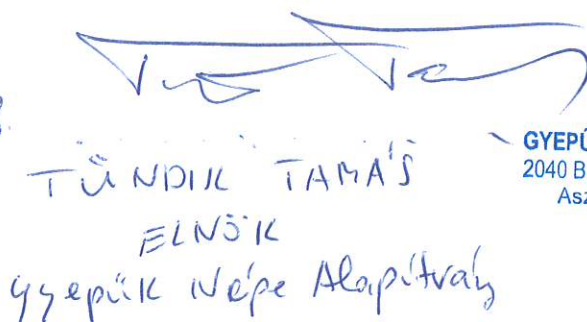 TÜNDIK TAMÁS
ELNÖK
Gyepük Népe Alapítvány
GYEPŰ
2040 B
Asz